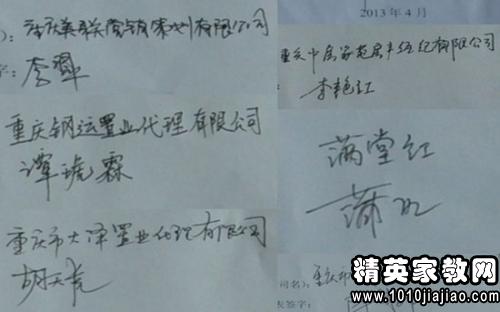 重庆美联营销策划有限公司
李犟
重庆钢运置业代理有限公司
谭琥霖
重庆市大泽置业代理有限公司
胡天虎
2013年4月
重庆中原家苑房产经纪有限公司
李艳红
满堂红
司名):重庆市
表签字:
精英家教网
www.1010jiajiao.com